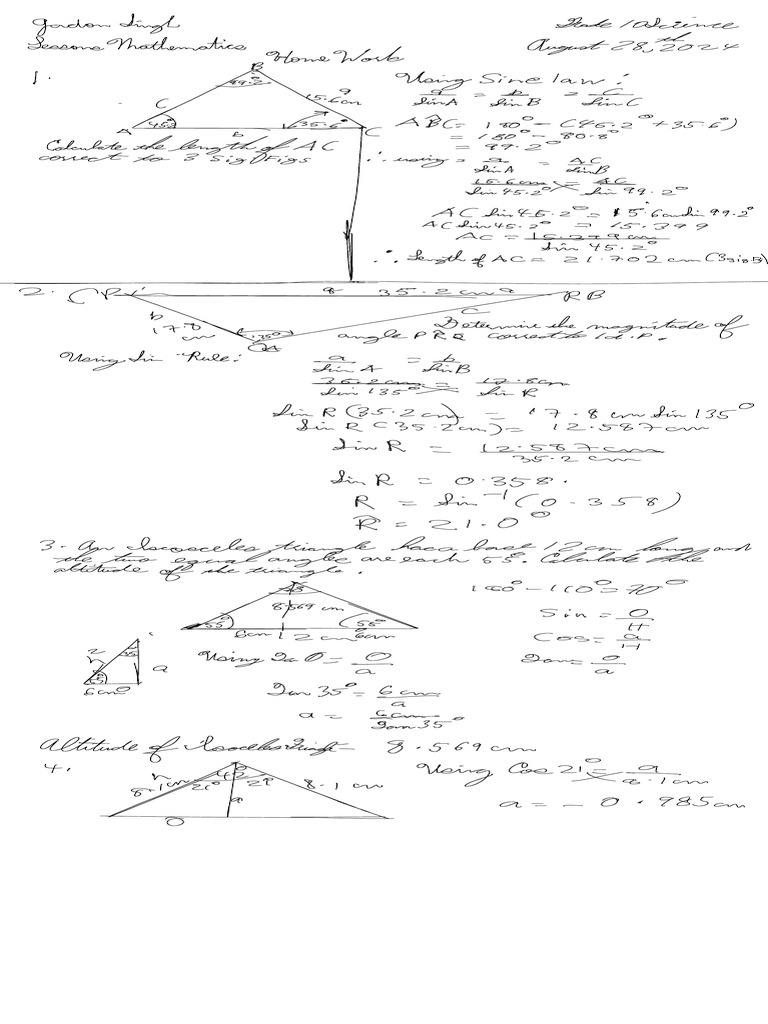 Gordon Singh
Lessons Mathematics
Home Work
August 28th, 2024
1.
B
99.2°
C
a
15.6cm
A
45.2°
b
35.6°
C
Calculate the length of AC
correct to 3 sig figs
Using Sine law:
a/Sin A = b/Sin B = C/Sin C
AB̂C = 180° - (45.2° + 35.6°)
= 180° - 80.8°
= 99.2°
∴ using = a/Sin A = AC/Sin B
15.6cm/Sin 45.2° = AC/Sin 99.2°
AC Sin 45.2° = 15.6cm Sin 99.2°
AC Sin 45.2° = 15.399
AC = 15.399cm/Sin 45.2°
∴ Length of AC = 21.702 cm
2.
35.2 cm
R B
b
17.8
cm
135°
C
Determine the magnitude of
angle PR̂Q correct to 1 d.p.
Using Sin Rule:
a/Sin A = b/Sin B
35.2cm/Sin 135° = 17.8cm/Sin R
Sin R (35.2cm) = 17.8cm Sin 135°
Sin R (35.2cm) = 12.587cm
Sin R = 12.587cm/35.2cm
Sin R = 0.358.
R = Sin⁻¹(0.358)
R = 21.0°
3. An Isosceles triangle has a base 12cm long and
the two equal angles are each 55°. Calculate the
altitude of the triangle.
8.569 cm
55°
55°
6cm
12cm
6cm
180° - 110° = 70°
Sin = O/H
Cos = a/H
Tan = O/a
35
a
6cm
Using Tan θ = O/a
Tan 35° = 6cm/a
a = 6cm/Tan 35°
Altitude of Isosceles Triangle = 8.569cm
4.
h
8.1cm
42
21°
21°
8.1 cm
a
O
Using Cos 21° = a/8.1cm
a = - 0.985cm